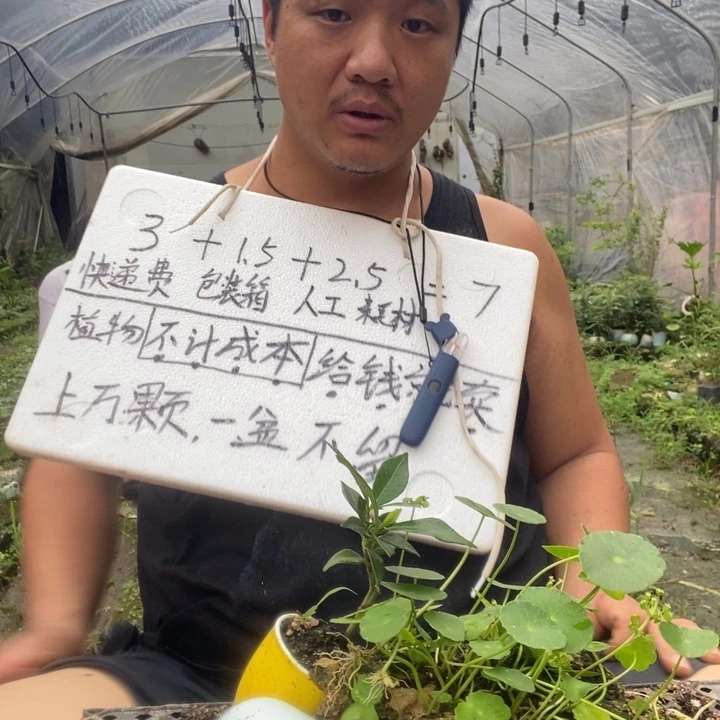 3 + 1.5 + 2.5 = 7
快递费 包装箱 人工 耗材
植物 不计成本 给钱 卖
上万颗,一盆不留